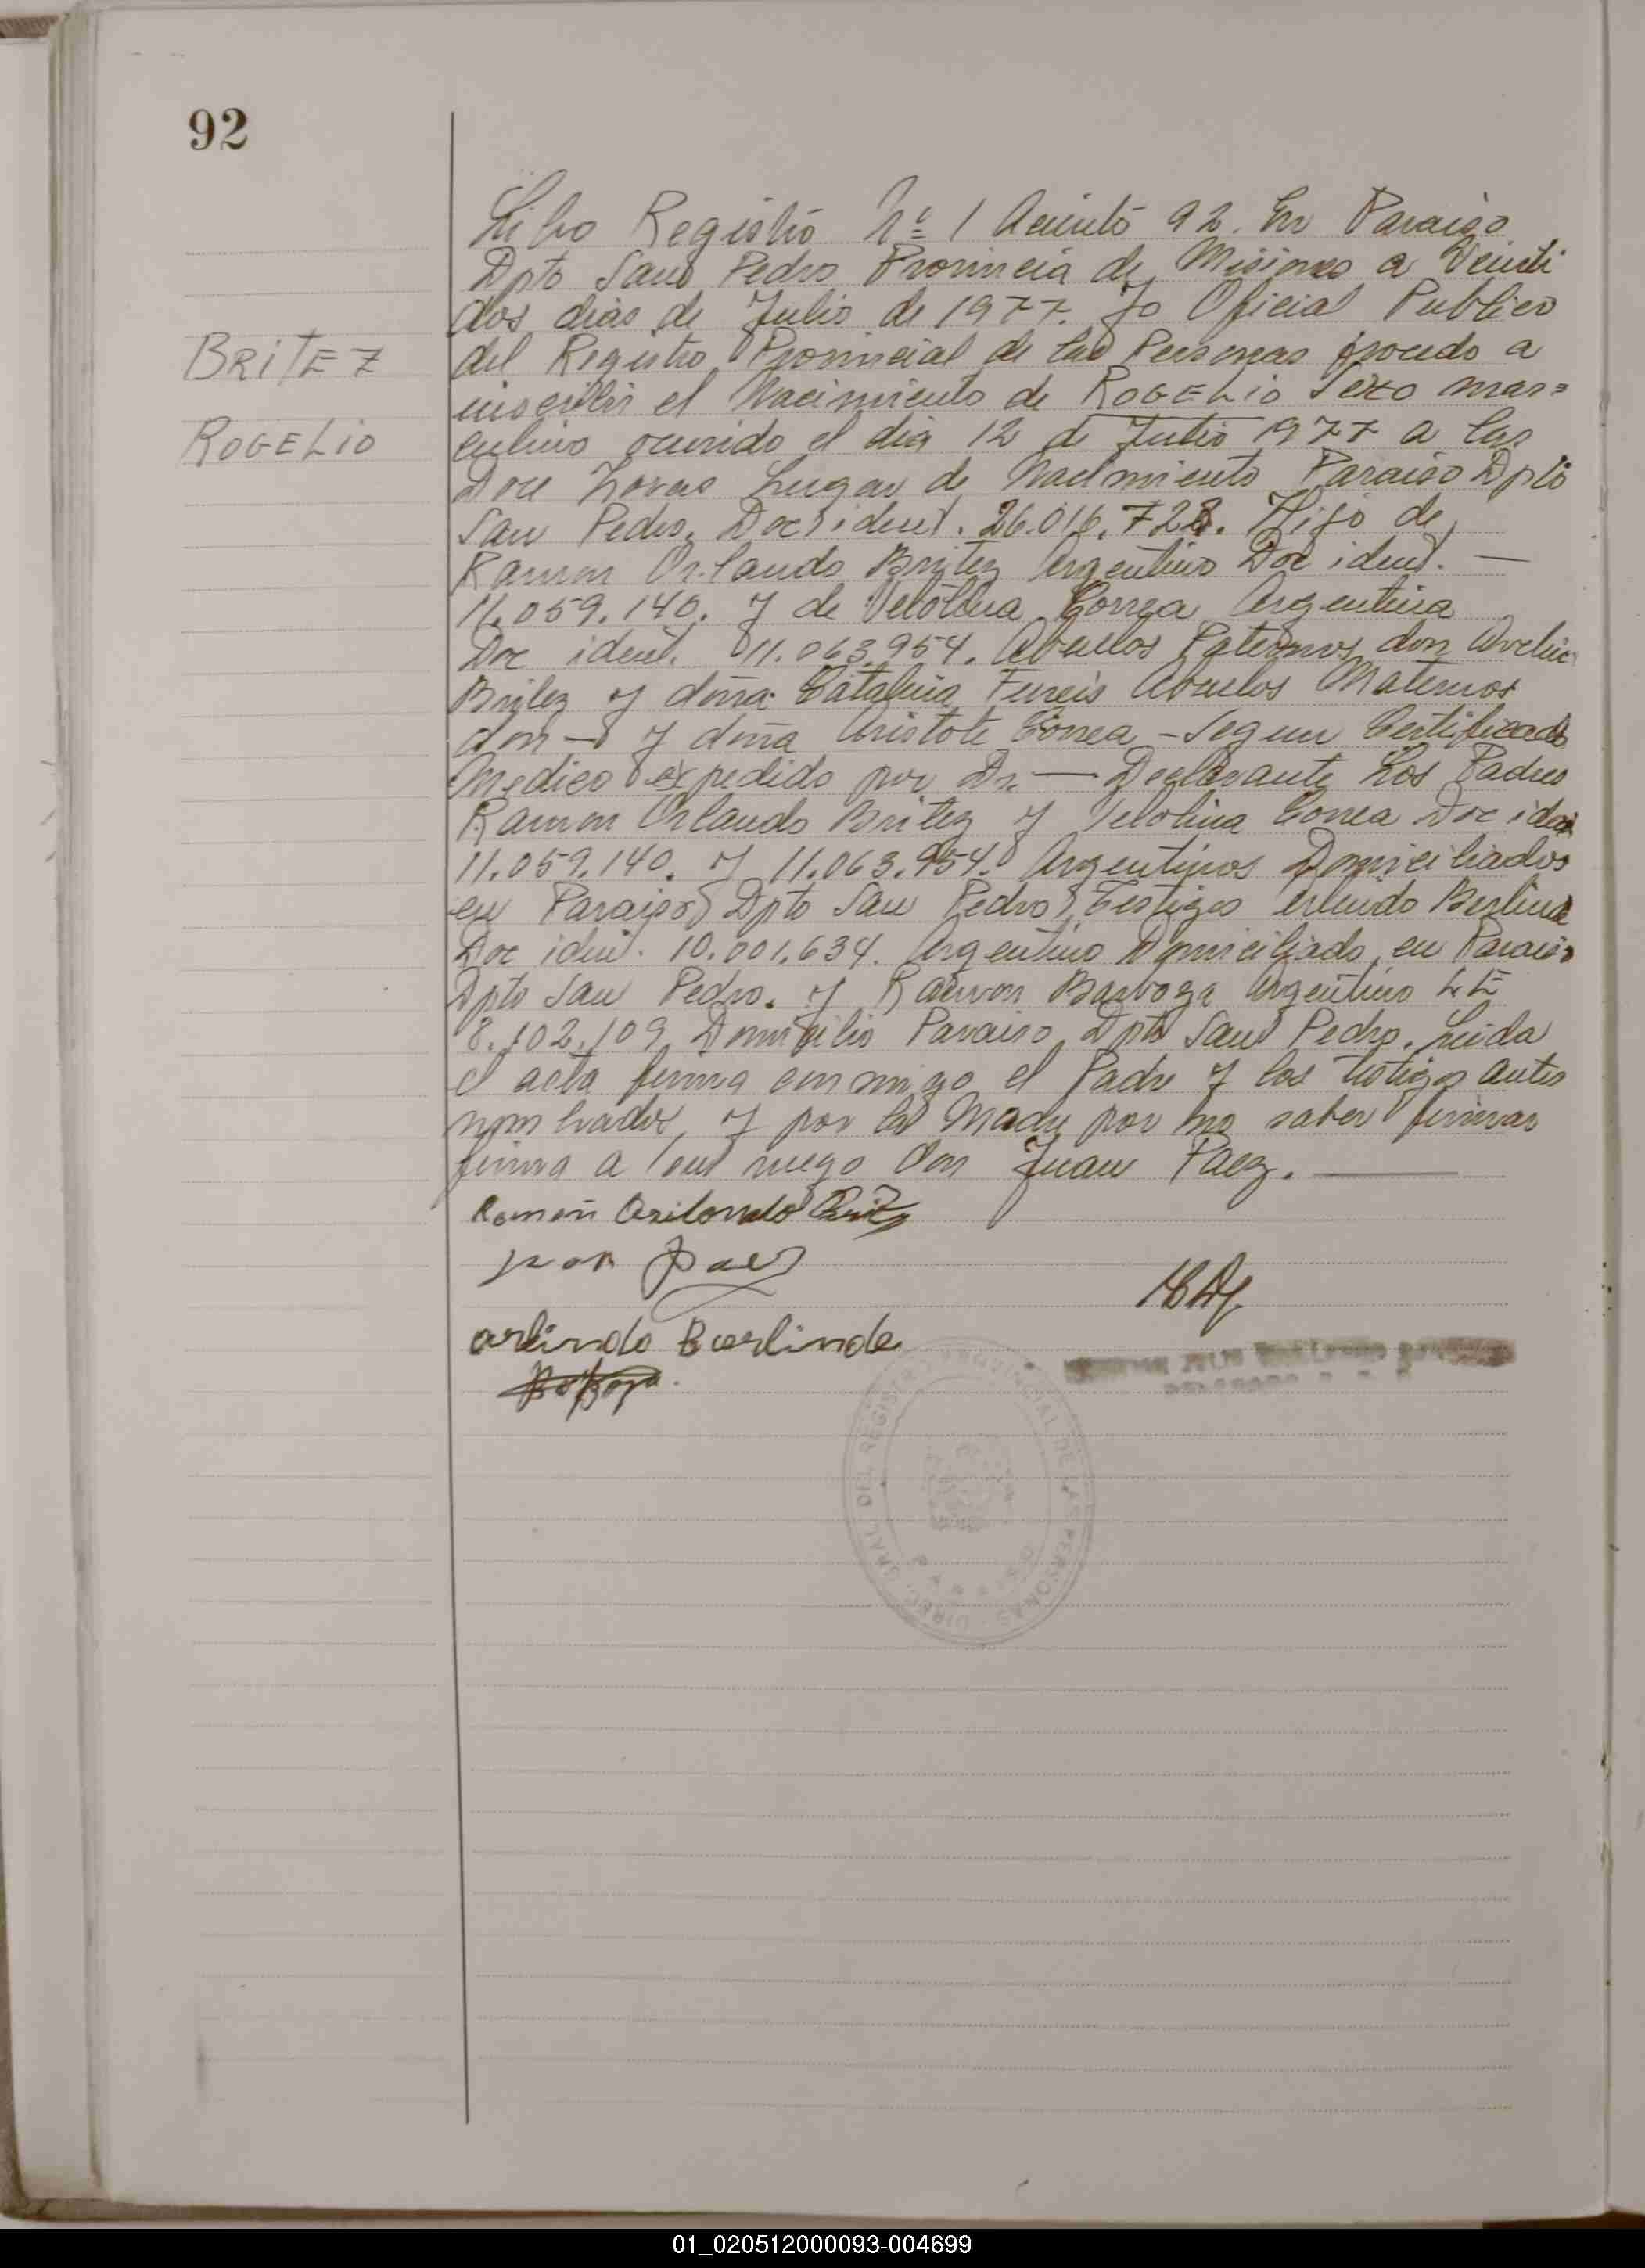 92
BRITEZ
ROGELIO
Libro Registro Nº 1 Acuntó 92. En Paraiso
Dpto San Pedro Provincia de Misiones a Veinti
dos dias de Julio de 1977. Yo Oficial Publico
del Registro Provincial de las Personas procedo a
inscribir el Nacimiento de ROGELIO Sexo mas=
culino ocurrido el dia 12 de Julio 1977 a las
Doce horas Lugar de Nacimiento Paraiso Dpto
San Pedro. Doc ident. 26.016.728. Hijo de
Ramon Orlando Britez Argentino Doc ident. —
11.059.140. y de Correa Argentina
Doc ident. 11.063.954. Abuelos Paternos don
Britez y doña Catalina Abuelos Maternos
don — y doña Aristote Correa - Segun Certificado
Medico expedido por Dr. — Declarante Los Padres
Ramon Orlando Britez y Correa Doc
11.059.140. y 11.063.954. Argentinos Domiciliados
en Paraiso Dpto San Pedro Testigos
Doc ident. 10.001.634. Argentino Domiciliado en Paraiso
Dpto San Pedro. y Ramon Barboza Argentino L.E
8.102.109 Domicilio Paraiso Dpto San Pedro. Leida
el acta firma conmigo el Padre y los testigos antes
nombrados, y por la Madre por no saber firmar
firma a su ruego Don Juan Paez. —
Ramon Orilondo Britez
Juan Paez
arlindo Berlinde
DIREC. GRAL. DEL REGISTRO PROVINCIAL DE LAS PERSONAS
01_020512000093-004699